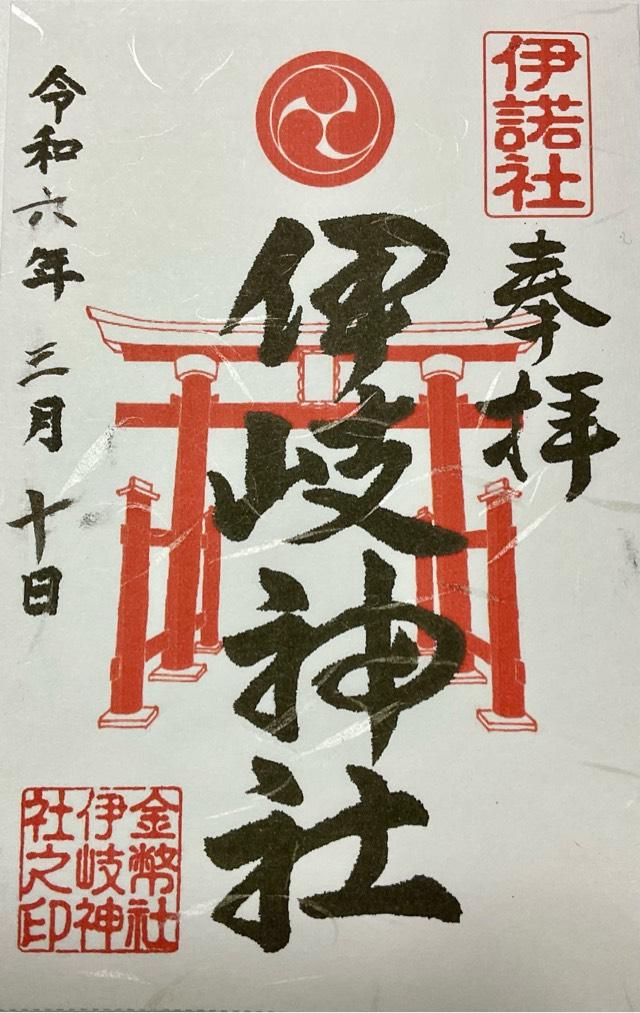 伊諾社
奉拝
伊岐神社
令和六年 三月 十日
金幣社
伊岐神
社之印